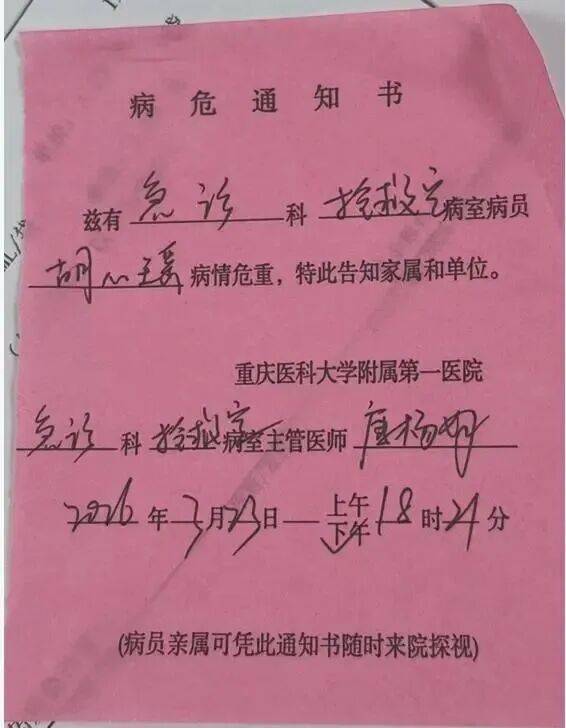 病危通知书
兹有 急诊 科 抢救室 病室病员
胡心瑶 病情危重，特此告知家属和单位。
重庆医科大学附属第一医院
急诊 科 抢救室 病室主管医师
2026 年 3 月 23 日 上午 18 时 24 分
下午
(病员亲属可凭此通知书随时来院探视)